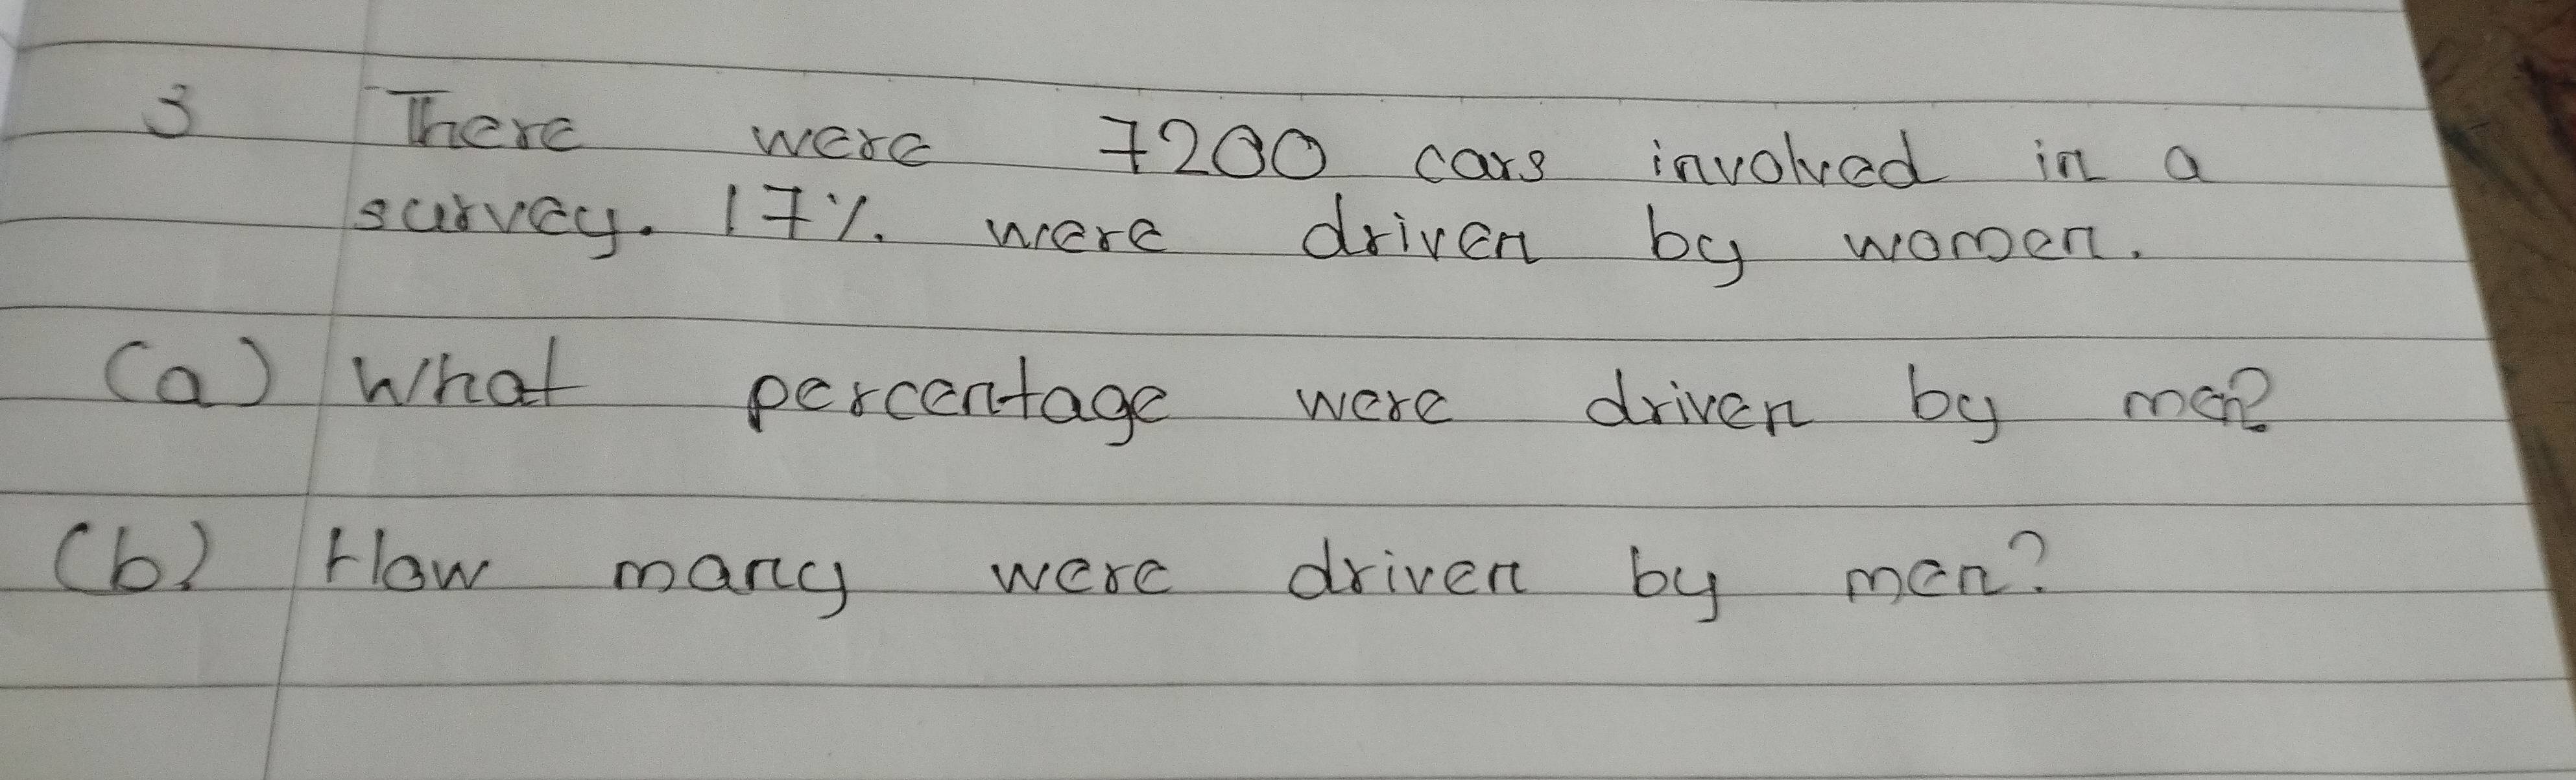 3 There were 7200 cars involved in a
survey. 17% were driven by women.
(a) What percentage were driven by men?
(b) How many were driven by men?